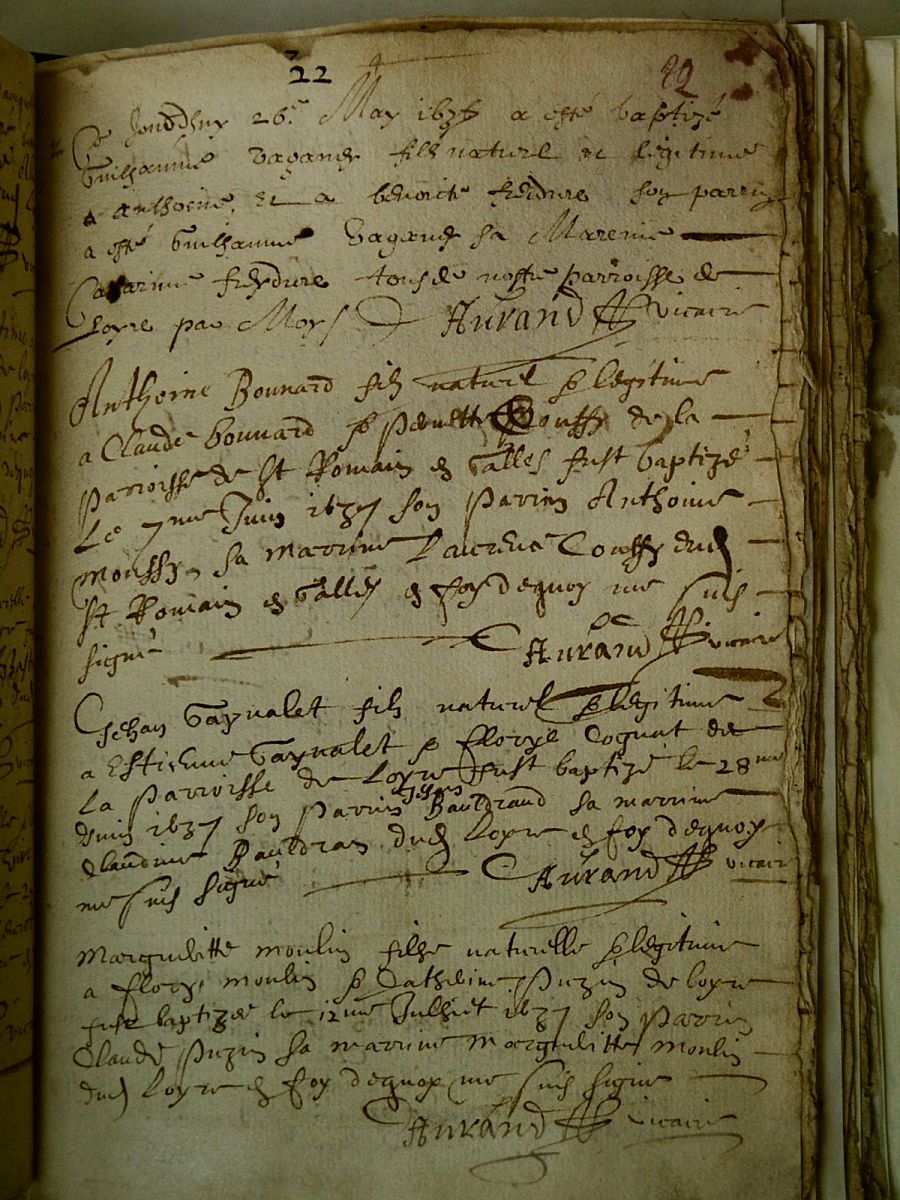 22
Ce 26e May a esté baptizé
Guilhaume Vagand filz naturel et legitime
a Anthoine et a benoicte son parrin
a esté Guilhaume Vagand sa Marrine
Catarine tous de nostre parroisse de
Loyre par Moy
Aurand vicaire
Anthoine Bonnard filz naturel & legitime
a Claude bonnard & de la
parroisse de St Romain en Galles fust baptizé
Le 7me Juin 1637 son parrin Anthoine
moussy sa marrine dud
St Romain en Galles en foy dequoy me suis
signé
Aurand vicaire
Jehan Gaynalet filz naturel & legitime
a Estienne Gaynalet & Floryе Cognat de
La parroisse de Loyre fust baptizé le 28me
Juin 1637 son parrin Bauldrand sa marrine
Claudine Bauldran dud Loyre en foy dequoy
me suis signé
Aurand vicaire
Marguelitte moulin filhe naturelle & legitime
a Flory moulin & Catherine Puzin de Loyre
fust baptizée le 12me Julhet 1637 son parrin
Claude Puzin sa marrine Marguelitte Moulin
dud Loyre en foy dequoy me suis signé
Aurand vicaire